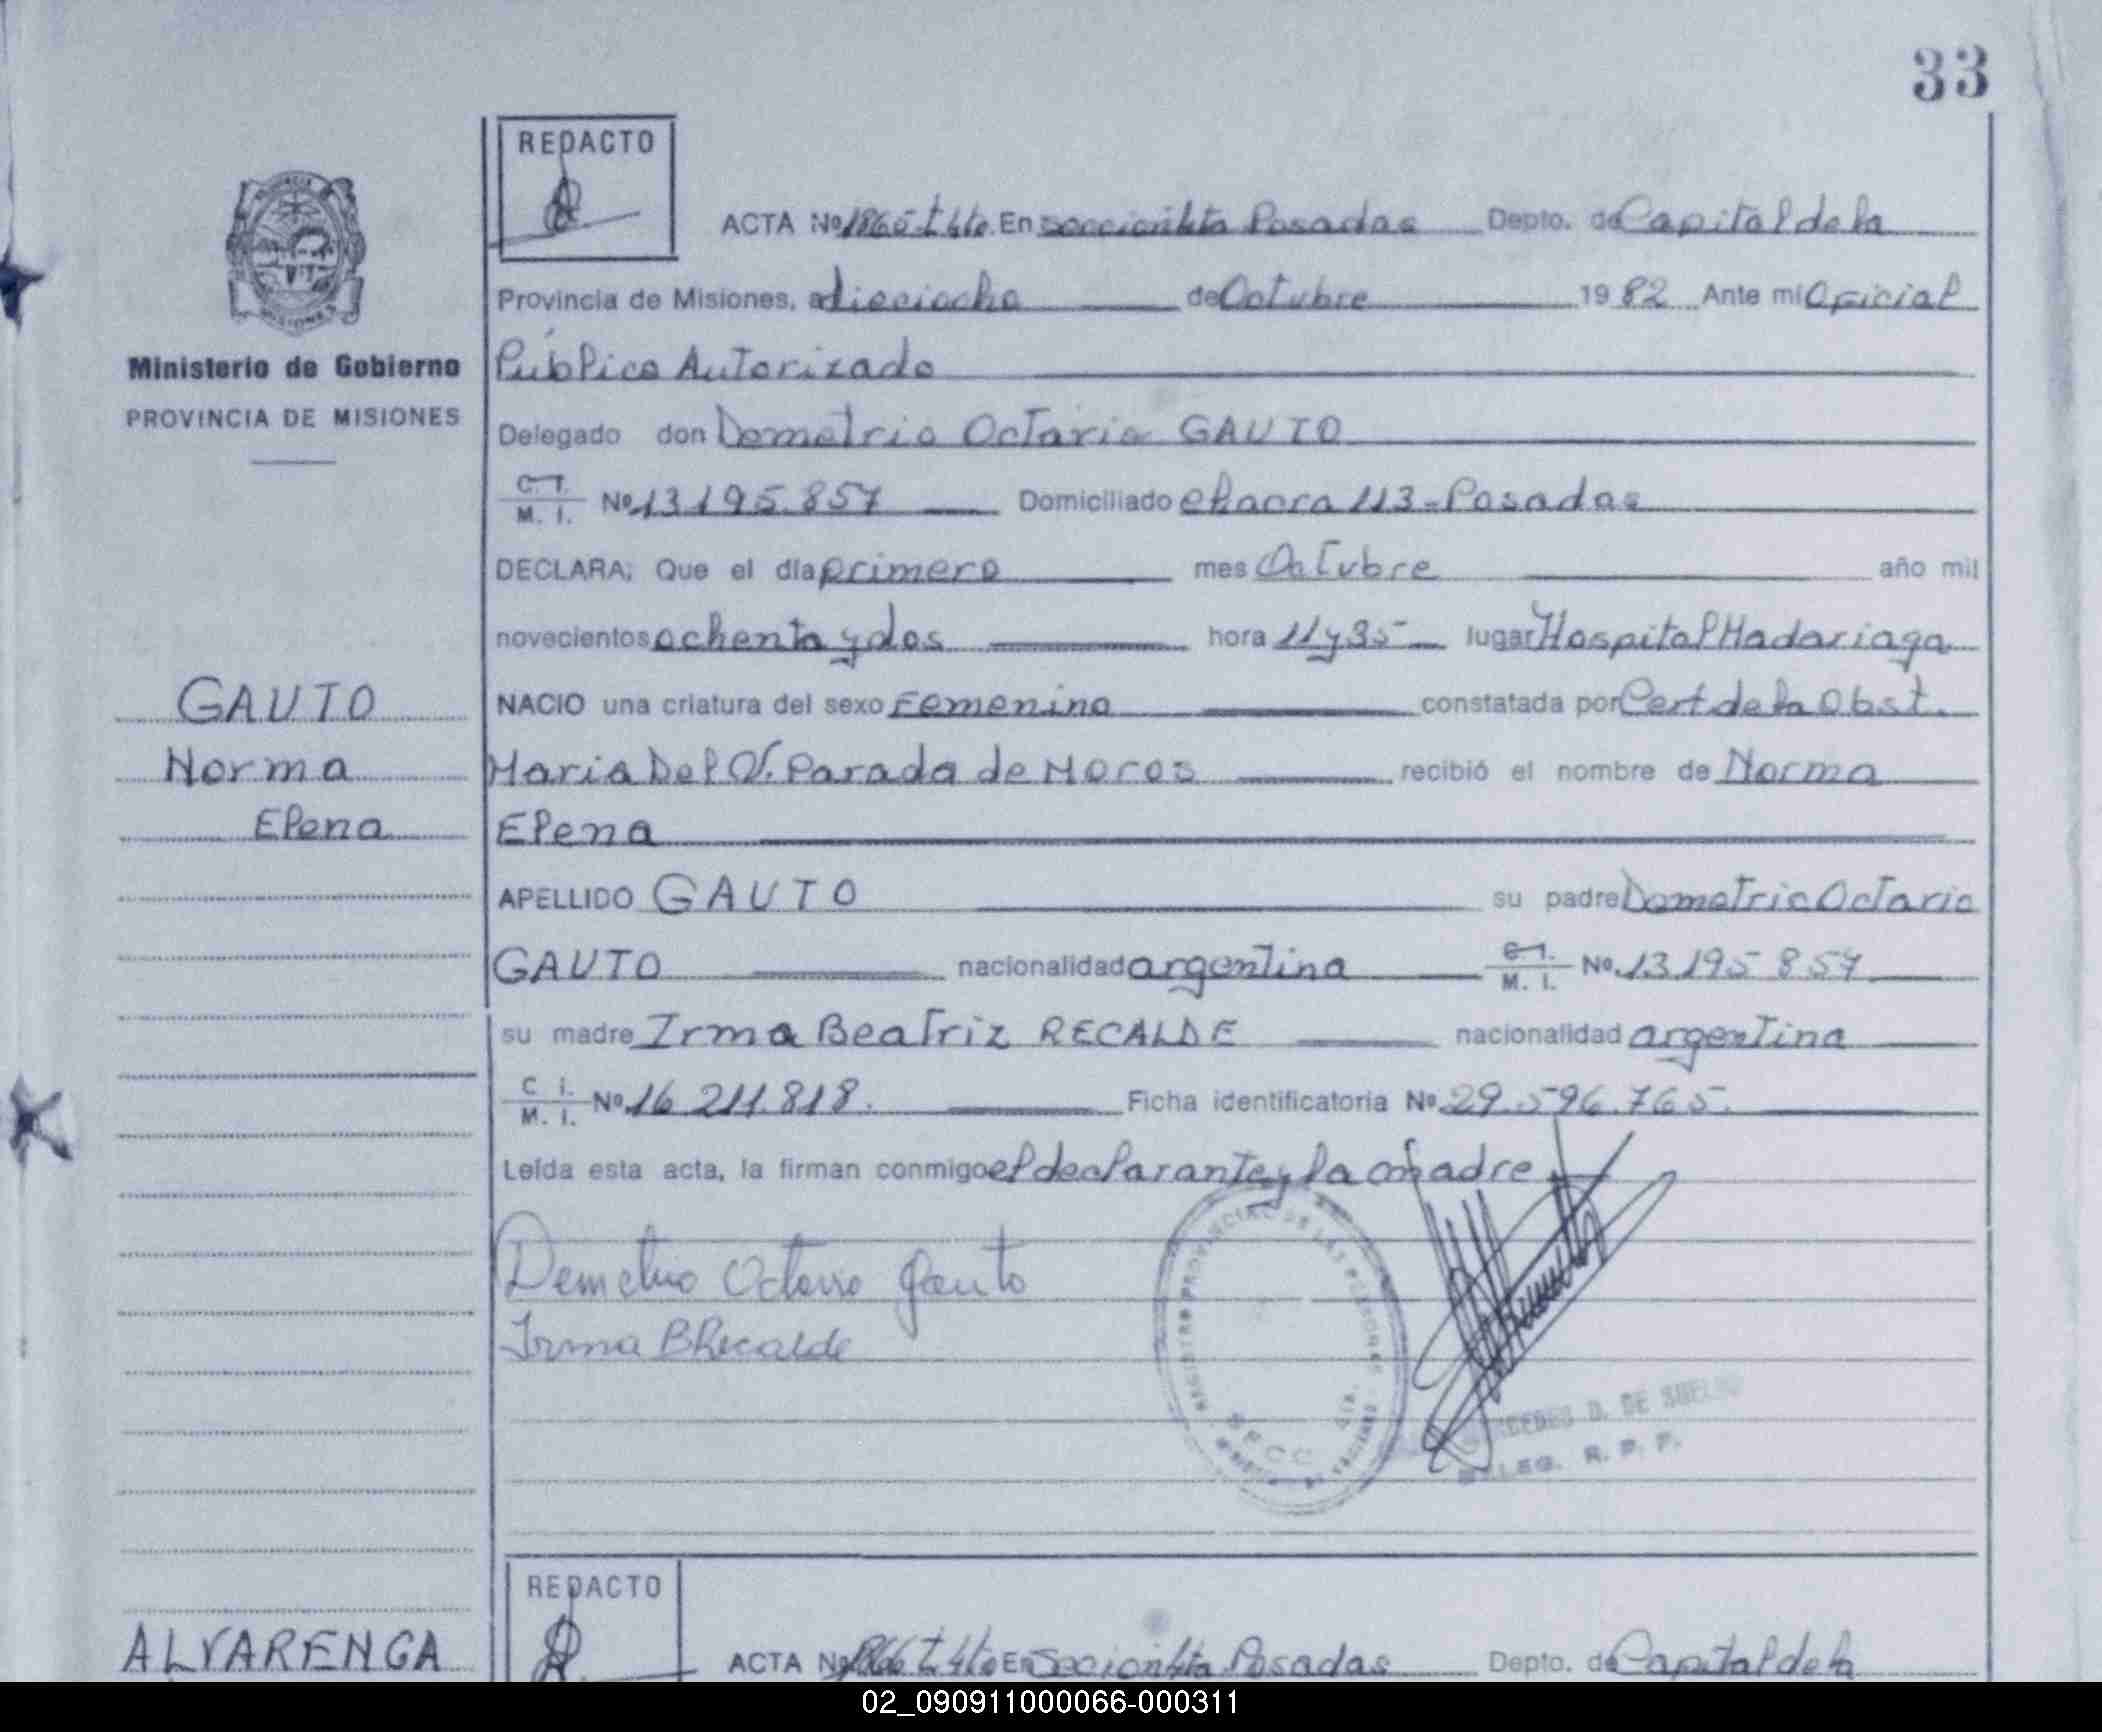 33
REDACTO
ACTA Nº 1865 t 4to. En sección 4ta Posadas Depto. de Capital de la
Provincia de Misiones, a dieciocho de Octubre 19 82 Ante mi Oficial
Ministerio de Gobierno
Público Autorizado
PROVINCIA DE MISIONES
Delegado don Demetrio Octavio GAUTO
C. I.
M. I. Nº 13.195.857 Domiciliado chacra 113 - Posadas
DECLARA; Que el día primero mes Octubre año mil
novecientos ochenta y dos hora 11 y 35 lugar Hospital Madariaga
GAUTO
NACIO una criatura del sexo Femenino constatada por Cert de la Obst.
Norma
Maria Del V. Parada de Moros recibió el nombre de Norma
Elena
Elena
APELLIDO GAUTO su padre Demetrio Octavio
GAUTO nacionalidad argentina C. I. M. I. Nº 13.195 857
su madre Irma Beatriz RECALDE nacionalidad argentina
C I.
M. I. Nº 16 211.818. Ficha identificatoria Nº 29.596.765.
Leída esta acta, la firman conmigo el declarante y la madre
Demetrio Octavio Gauto
Irma B Recalde
REGISTRO PROVINCIAL DE LAS PERSONAS
SECC. 4ta.
D. DE
DELEG. R. P. P.
REDACTO
ALVARENGA
ACTA Nº 1866 t 4to En Sección 4ta Posadas Depto. de Capital de la
02_090911000066-000311